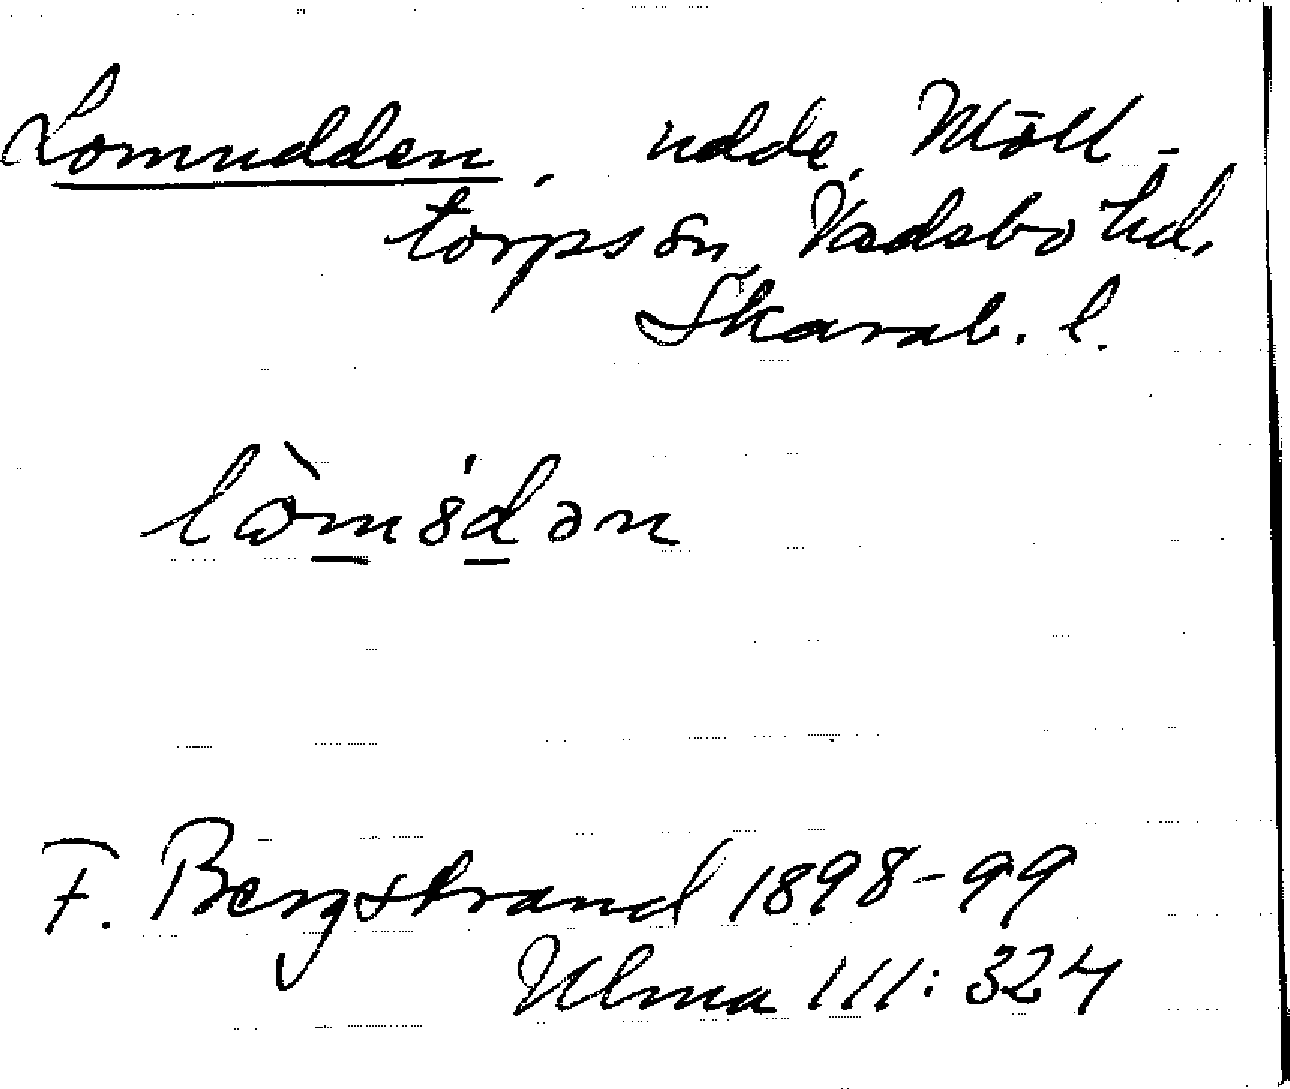 Lomudden, udde, Möll-
torps sn, Vadsbo hd,
Skarab. l.
lòmsdən
F. Bergstrand 1898-99
Ulma 111:324